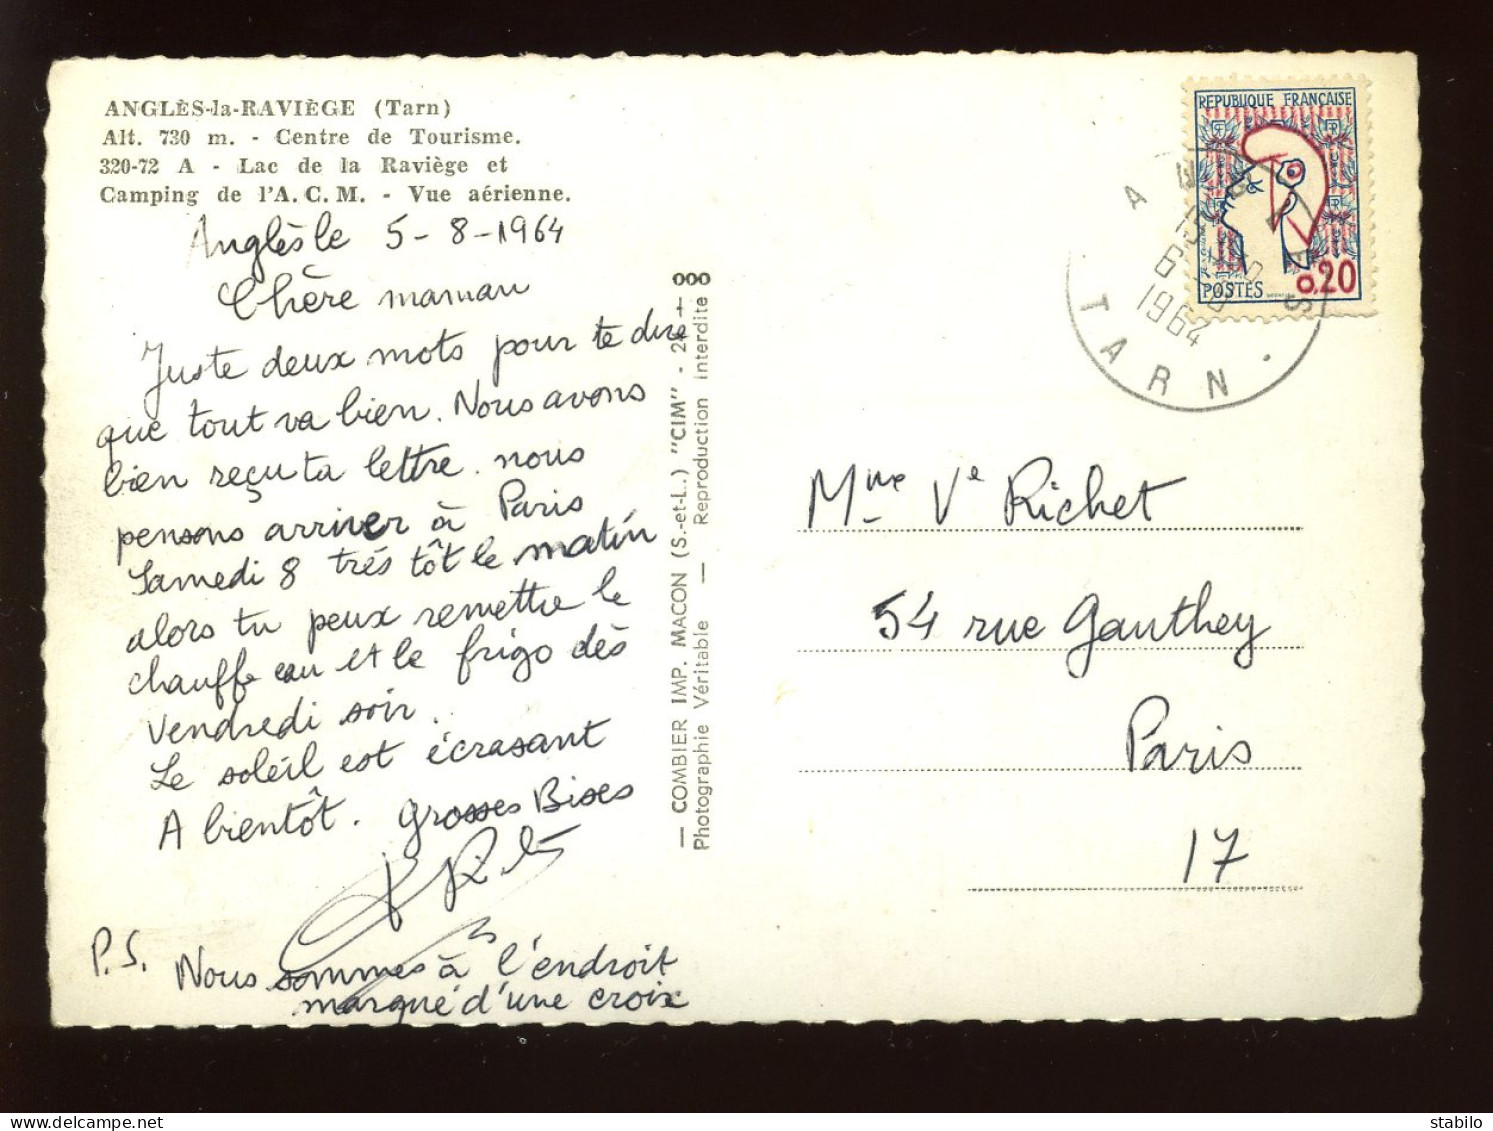 ANGLÈS-la-RAVIÈGE (Tarn)
Alt. 730 m. - Centre de Tourisme.
320-72 A - Lac de la Raviège et
Camping de l'A.C.M. - Vue aérienne.
Anglès le 5-8-1964
Chère maman
Juste deux mots pour te dire
que tout va bien. Nous avons
bien reçu ta lettre. nous
pensons arriver à Paris
Samedi 8 trés tôt le matin
alors tu peux remettre le
chauffe eau et le frigo dès
Vendredi soir.
Le soleil est écrasant
A bientôt. Grosses Bises
P.S. Nous sommes à l'endroit
marqué d'une croix
— COMBIER IMP. MACON (S.-et-L.) "CIM" -
Photographie Véritable — Reproduction interdite
REPUBLIQUE FRANÇAISE
POSTES 0.20
ANGLES
6
1964
TARN
Mme Ve Richet
54 rue Gauthey
Paris
17
www.delcampe.net
stabilo